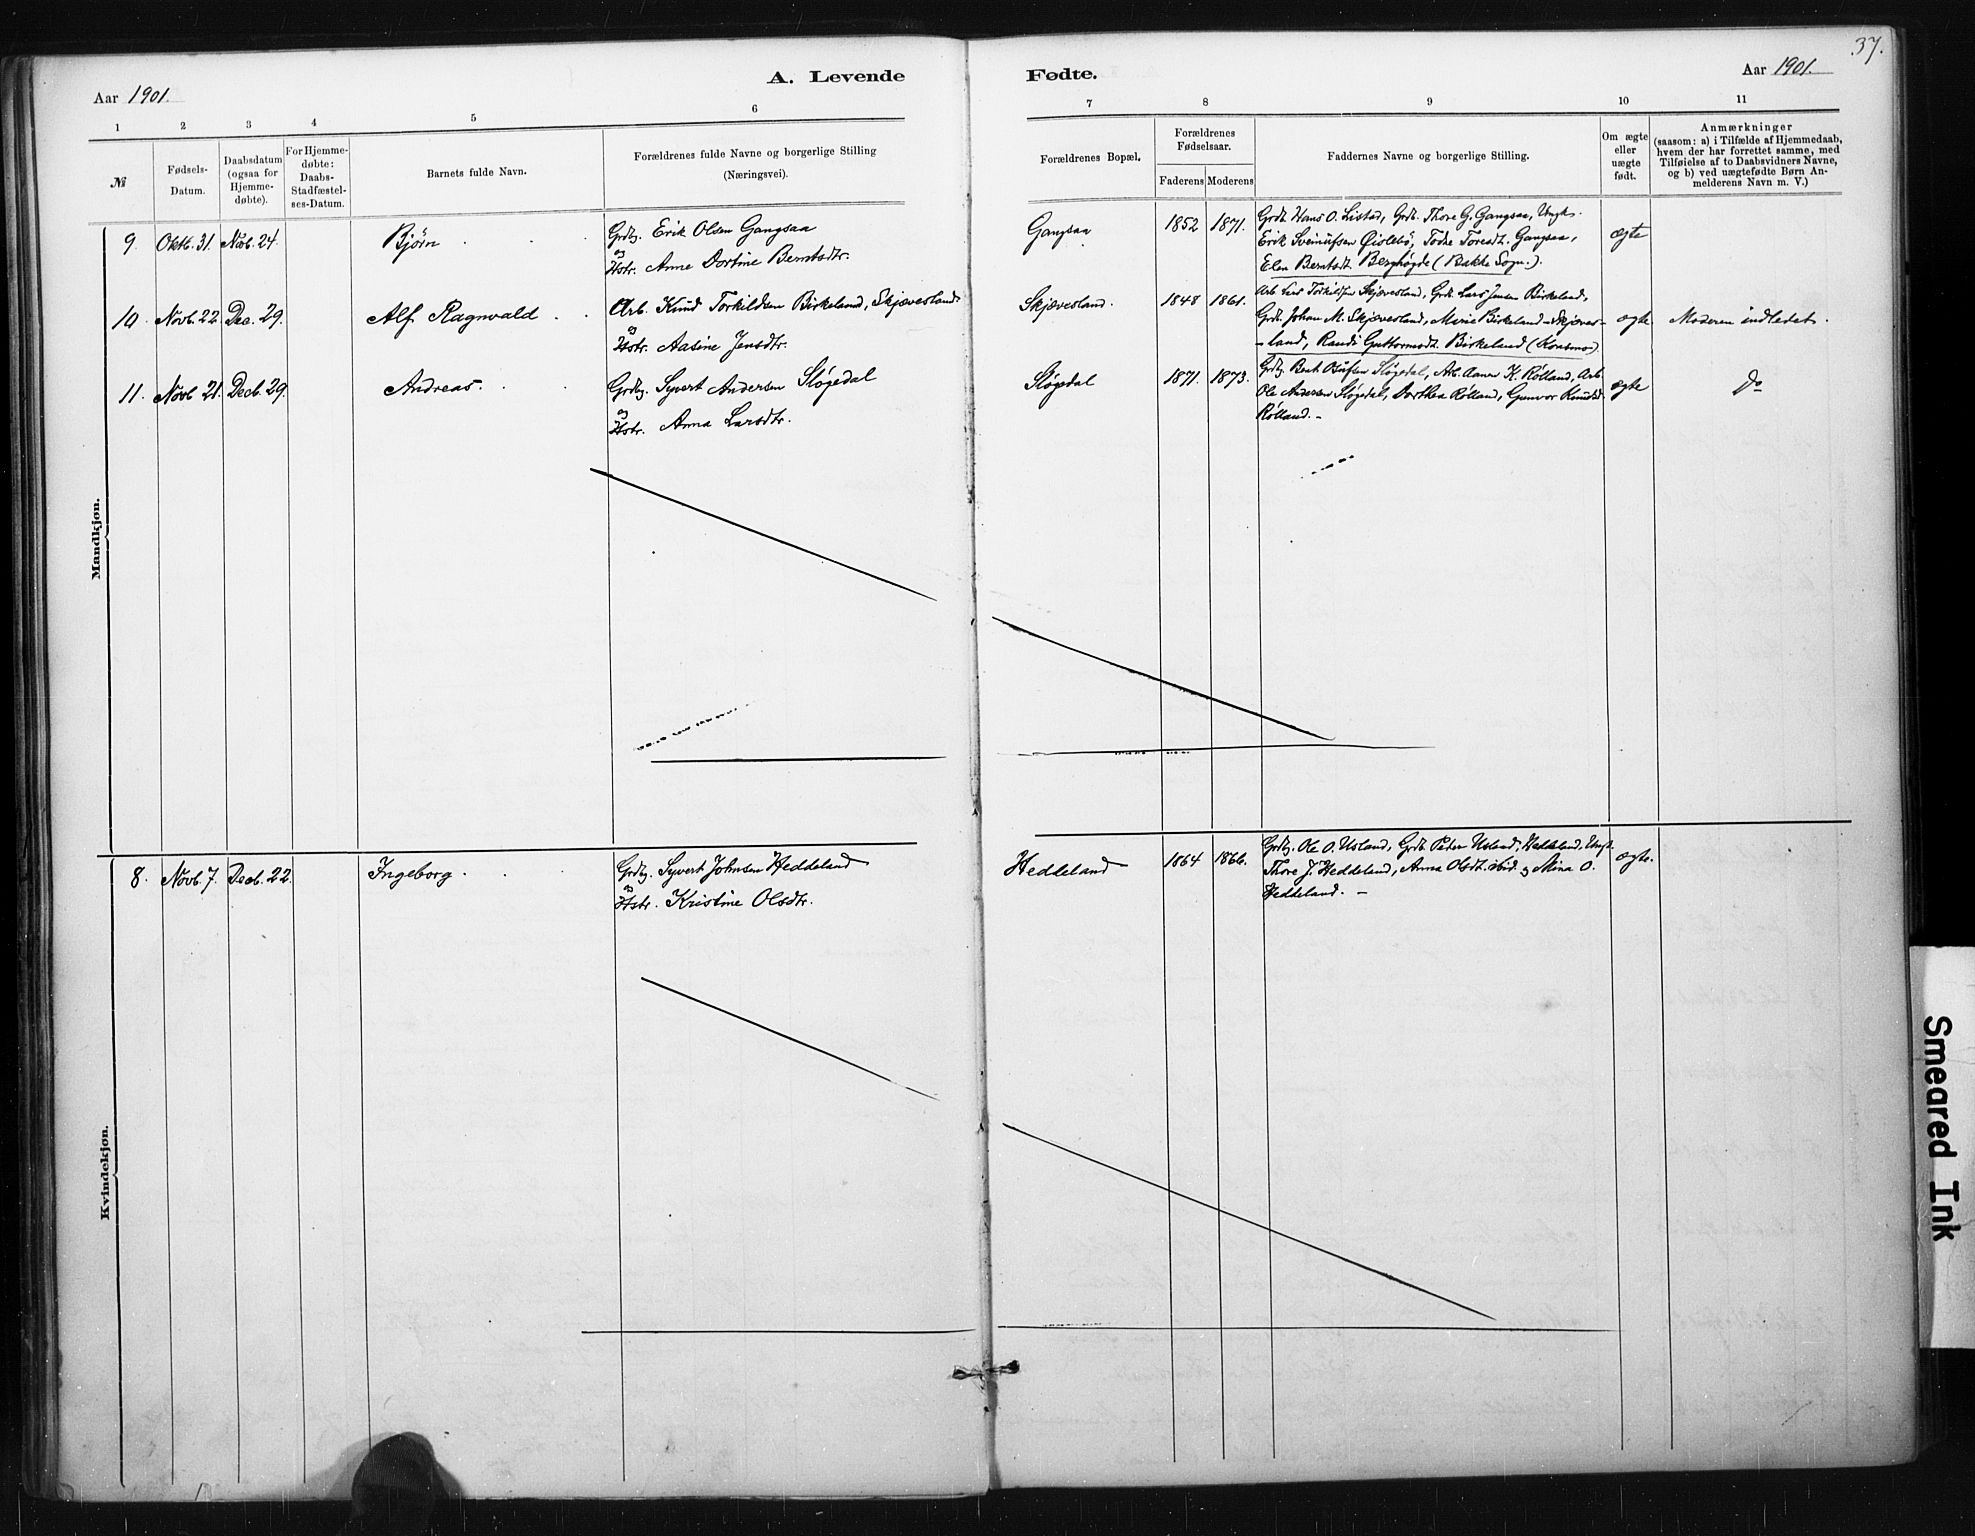 37.
A. Levende Fødte.
Aar 1901. Aar 1901.
1 2 3 4 5 6 7 8 9 10 11
№
Fødsels-Datum.
Daabsdatum (ogsaa for Hjemme-døbte).
For Hjemme-døbte: Daabs-Stadfæstel-ses-Datum.
Barnets fulde Navn.
Forældrenes fulde Navne og borgerlige Stilling
(Næringsvei).
Forældrenes Bopæl.
Forældrenes Fødselsaar.
Faderens Moderens
Faddernes Navne og borgerlige Stilling.
Om ægte eller uægte født.
Anmærkninger
(saasom: a) i Tilfælde af Hjemmedaab,
hvem der har forrettet samme, med
Tilføielse af to Daabsvidners Navne,
og b) ved uægtefødte Børn An-
melderens Navn m. V.)
Mandkjøn.
9. Oktb. 31. Novb. 24. Bjørn Grdbr. Erik Olsen Gangsaa
og Hstr. Anne Dortine Berntsdtr.
Gangsaa 1852 1871. Grdb. Hans O. Listad, Grdb. Thore G. Gangsaa, Ungk.
Erik Øislebø, Gangsaa,
Elen Berntsdt. Berghøgde (Bakke Sogn.).
ægte
10. Novb. 22. Dec. 29. Alf Ragnvald. Arb. Knud Torkildsen Birkeland, Skjævesland
og Hstr. Aasine Jensdtr.
Skjævesland. 1848 1861. Arb. Lars Torkildsen Skjævesland, Grdb. Lars Jensen Birkeland,
Grdb. Johan M. Skjævesland, Marie Birkeland-Skjæves-
-land, Randi Guttormsdt. Birkeland (Konsmo).
ægte Moderen indledet.
11. Novb. 21. Decb. 29. Andreas. Grdbr. Syvert Andersen Sløgedal
og Hstr. Anna Larsdtr.
Sløgedal 1871. 1873. Grdbr. Sløgedal, Arb. Aanen K. Røiland, Arb.
Ole Andersen Sløgedal, Dorthea Røiland, Gunvor Knudsd.
Røiland. -
ægte Do
Kvindekjøn.
8. Novb. 7. Decb. 22. Ingeborg. Grdbr. Syvert Johnsen Heddeland
og Hstr. Kristine Olsdtr.
Heddeland 1864 1866. Grdbr. Ole O. Usland, Grdb. Peder Usland, Heddeland, Ungk.
Thore J. Heddeland, Anna Olsdt. ibid. og Mina O.
Heddeland. -
ægte.
Smeared Ink